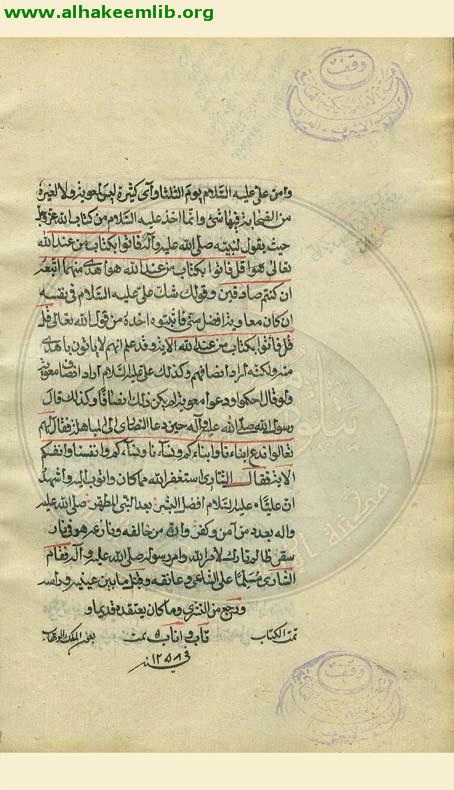 www.alhakeemlib.org
وقف
وامن علي عليه السلام يوم الثلثا وآى كثيرة ليس لمعوية ولا لغيره
من الصحابة فيها شئ وانما اخذ عليه السلام من كتاب الله عز وجل
حيث يقول لنبيه صلى الله عليه وآله فاتوا بكتاب من عند الله
تعالى هو اقل فاتوا بكتاب من عند الله هو اهدى منهما اتبعه
ان كنتم صادقين وقولك شك علي عليه السلام في نفسه
ان كان معاوية افضل مني فاثبتوه اخذه من قول الله تعالى قل
قل فاتوا بكتاب من عند الله الاية وقد علم انهم لا ياتون باهدى
منه ولكنه اراد انصافهم وكذلك علي عليه السلام اراد انصاف معوية
ولو قال احكموا ودعوا معوية لم يكن ذلك انصافا وكذلك قال
رسول الله صلى الله عليه وآله حين دعا النصارى الى المباهلة فقال لهم
تعالوا ندع ابناءنا وابناءكم ونساءنا ونساءكم وانفسنا وانفسكم
الاية فقال الشاري استغفر الله مما كان واتوب اليه واشهد
ان عليا عليه السلام افضل البشر بعد النبي المطهر صلى الله عليه
واله بعدد من آمن وكفر وان من خالفه ونازعه هو في نار
سقر ظالم تارك لامر الله وامر رسوله صلى الله عليه وآله فقام
الشاري مسلما على الشاعي وعانقه وقبل ما بين عينيه وراسه
ورجع من الشري وما كان يعتقده قديما و
تمت الكتاب تاب واناب تمت بعون الملك الوهاب
في سنة ١٢٥٨
وقف